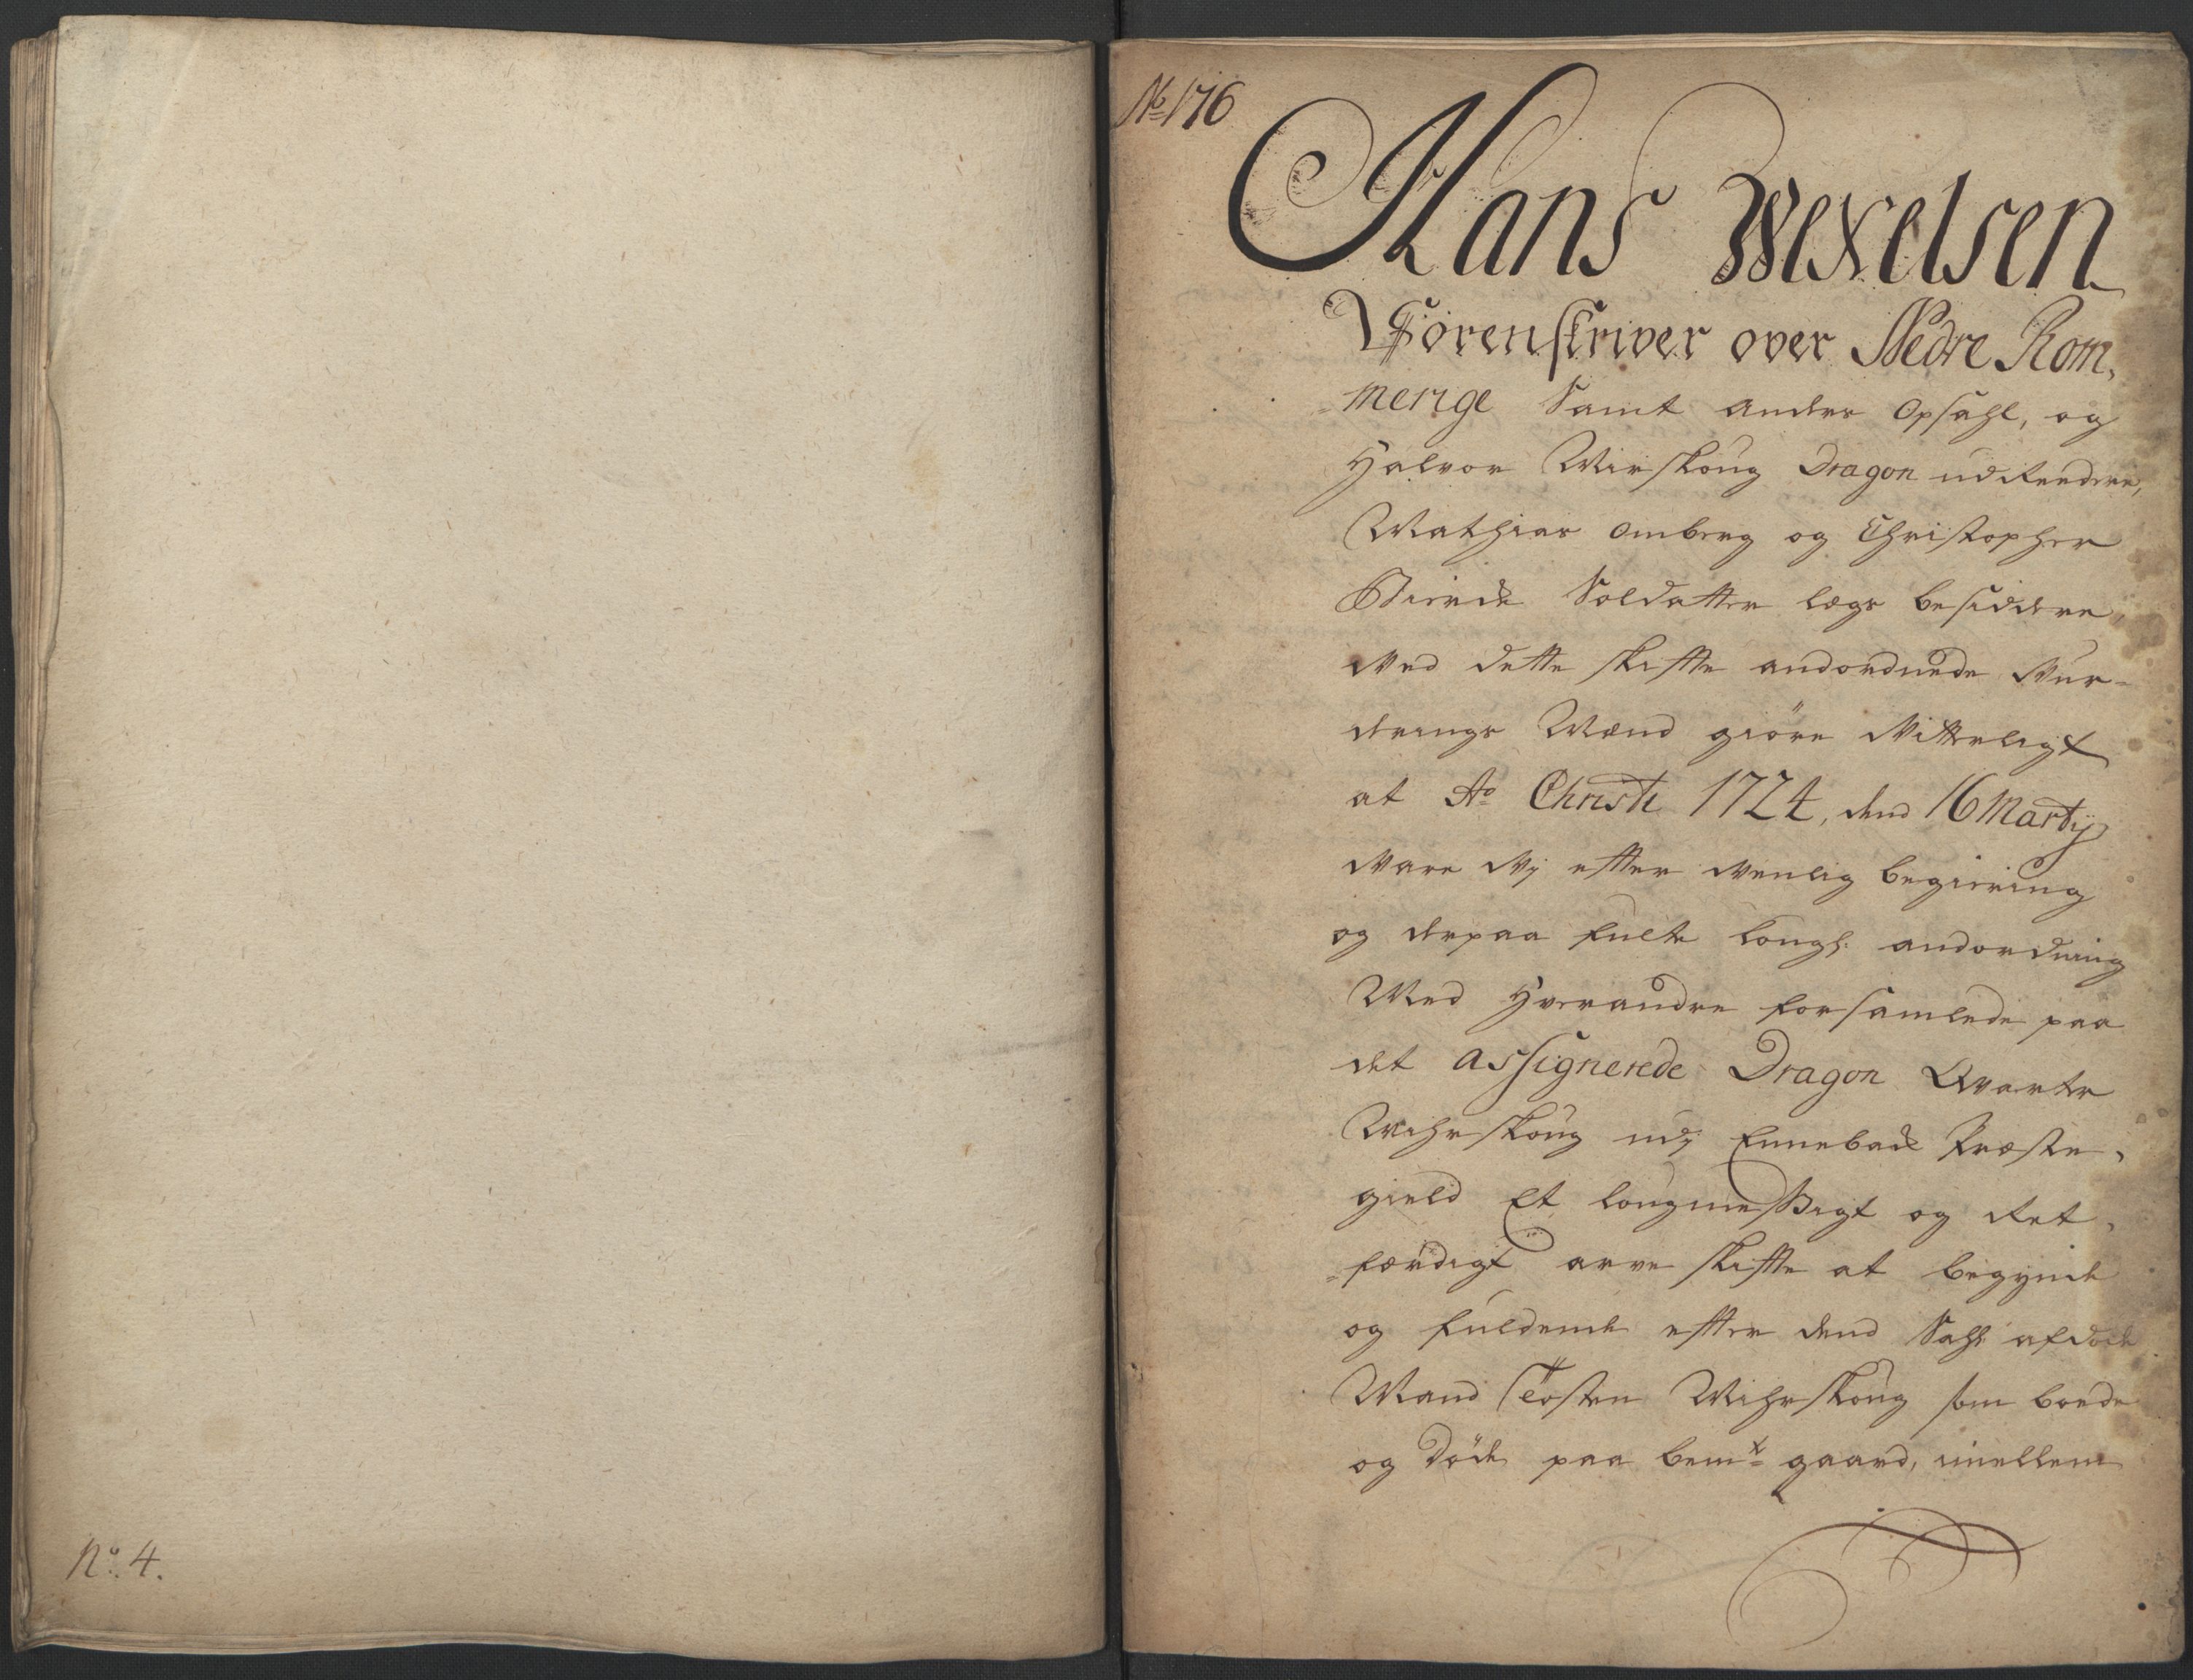 No. 4.
No 176
Hans Wexelsen
Sorenskriver over Nedre Rom,
merige Samt Anders Opsahl, og
Halvor Wirskoug Dragon udReedere,
Mathias Omberg og Christopher
Soldatter legs besiddere,
Med dette skiffte andordnede Vur-
derings Mænd giöre Vitterligt
at Ao Christi 1724, dend 16 Martij
Vare Vj effter Venlig begiering
og derpaa fulte lougl: andordning
Med Hverandre forsamlede paa
det assignerede Dragon Qvarter
Wihrskoug udj Ennebach Præste,
gield Et lougmeßigt og Ret,
færdigt arve skiffte at begynde
og fuldende effter dend Sahl: afdöde
Mand Tosten Wihrskoug som boede
og döde paa bemte gaard, imellem